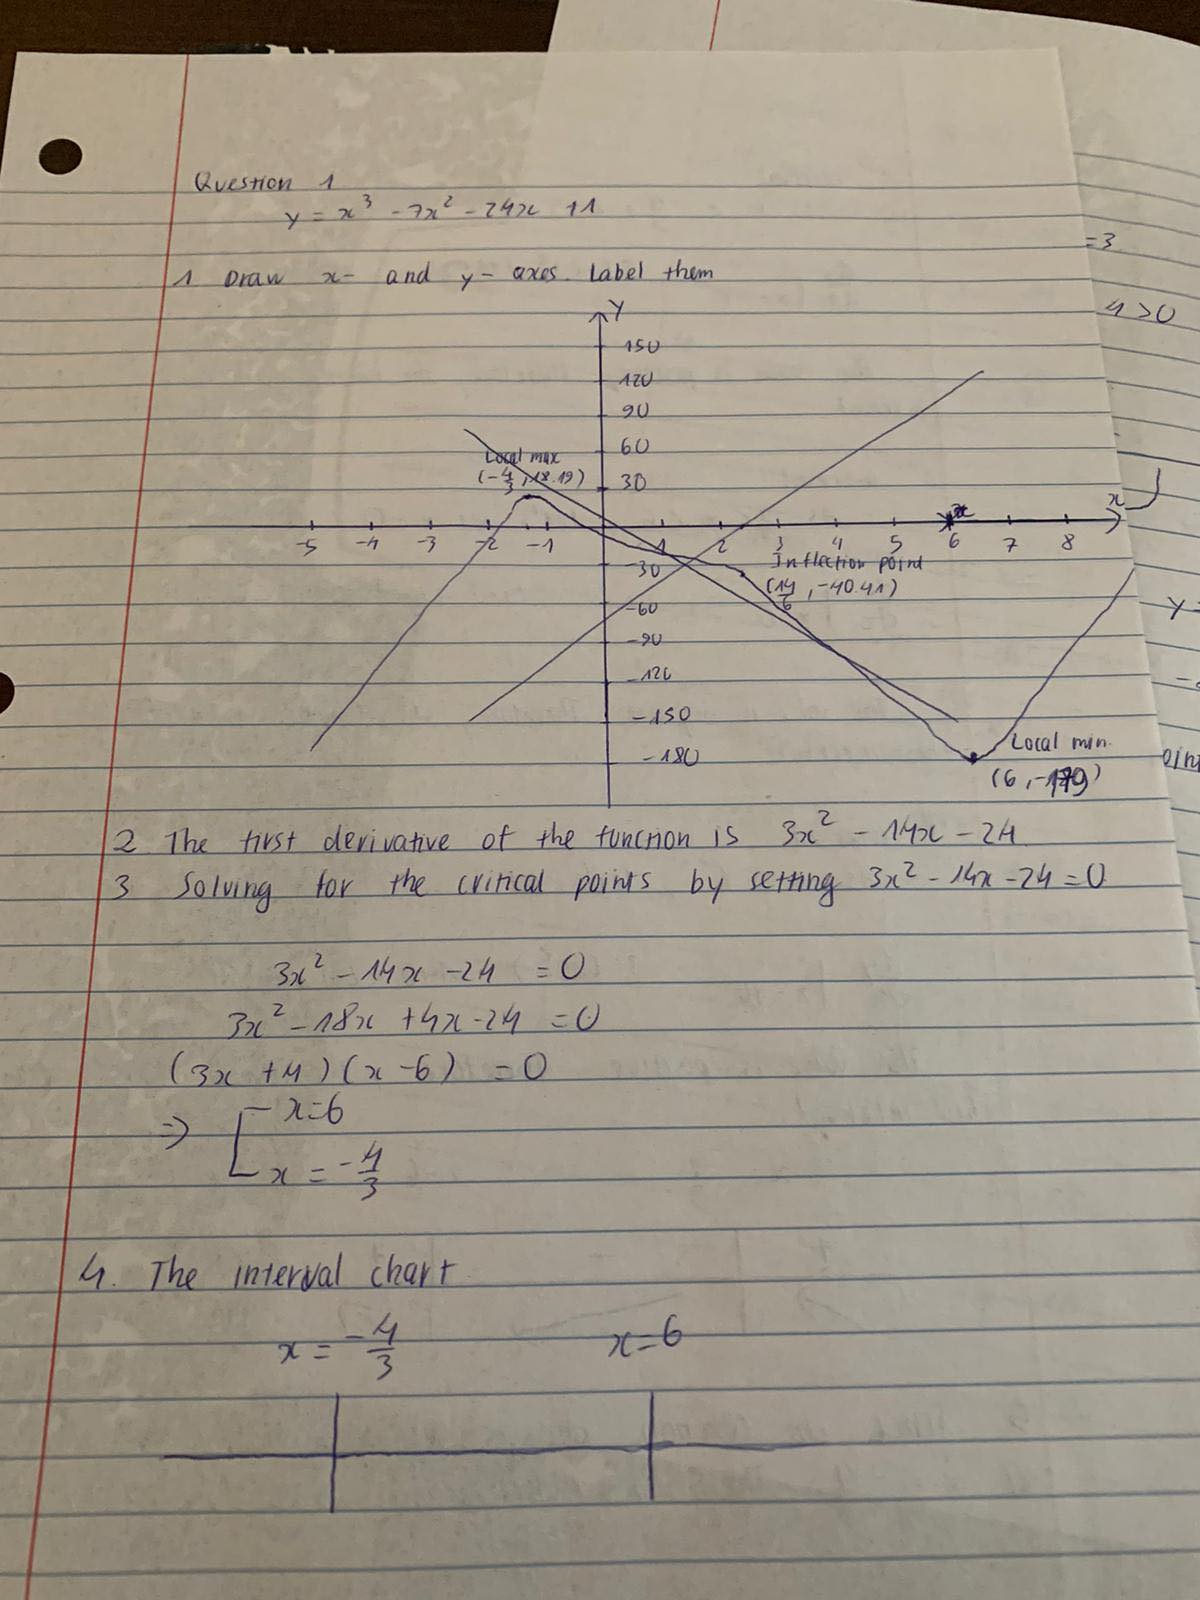 Question 1
y = x³ - 7x² - 24x + 1
1 Draw x- and y- axes. Label them
=3
4 > 0
y
150
120
90
60
30
Local max
(-4/3, 18.19)
x
x
-5 -4 -3 -2 -1 1 2 3 4 5 6 7 8
-30
-60
-90
-120
-150
-180
Inflection point
(14/6, -40.41)
y =
Local min.
(6, -179)
2 The first derivative of the function is 3x² - 14x - 24
3 Solving for the critical points by setting 3x² - 14x - 24 = 0
3x² - 14x - 24 = 0
3x² - 18x + 4x - 24 = 0
(3x + 4)(x - 6) = 0
⇒ x = 6
x = -4/3
4. The interval chart
x = -4/3 x = 6